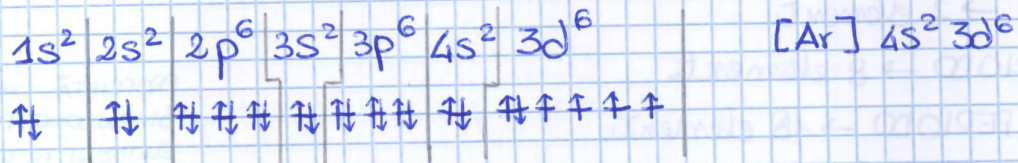 1s² 2s² 2p⁶ 3s² 3p⁶ 4s² 3d⁶ [Ar] 4s² 3d⁶
⥮ ⥮ ⥮ ⥮ ⥮ ⥮ ⥮ ⥮ ⥮ ⥮ ⥮ ↑ ↑ ↑ ↑